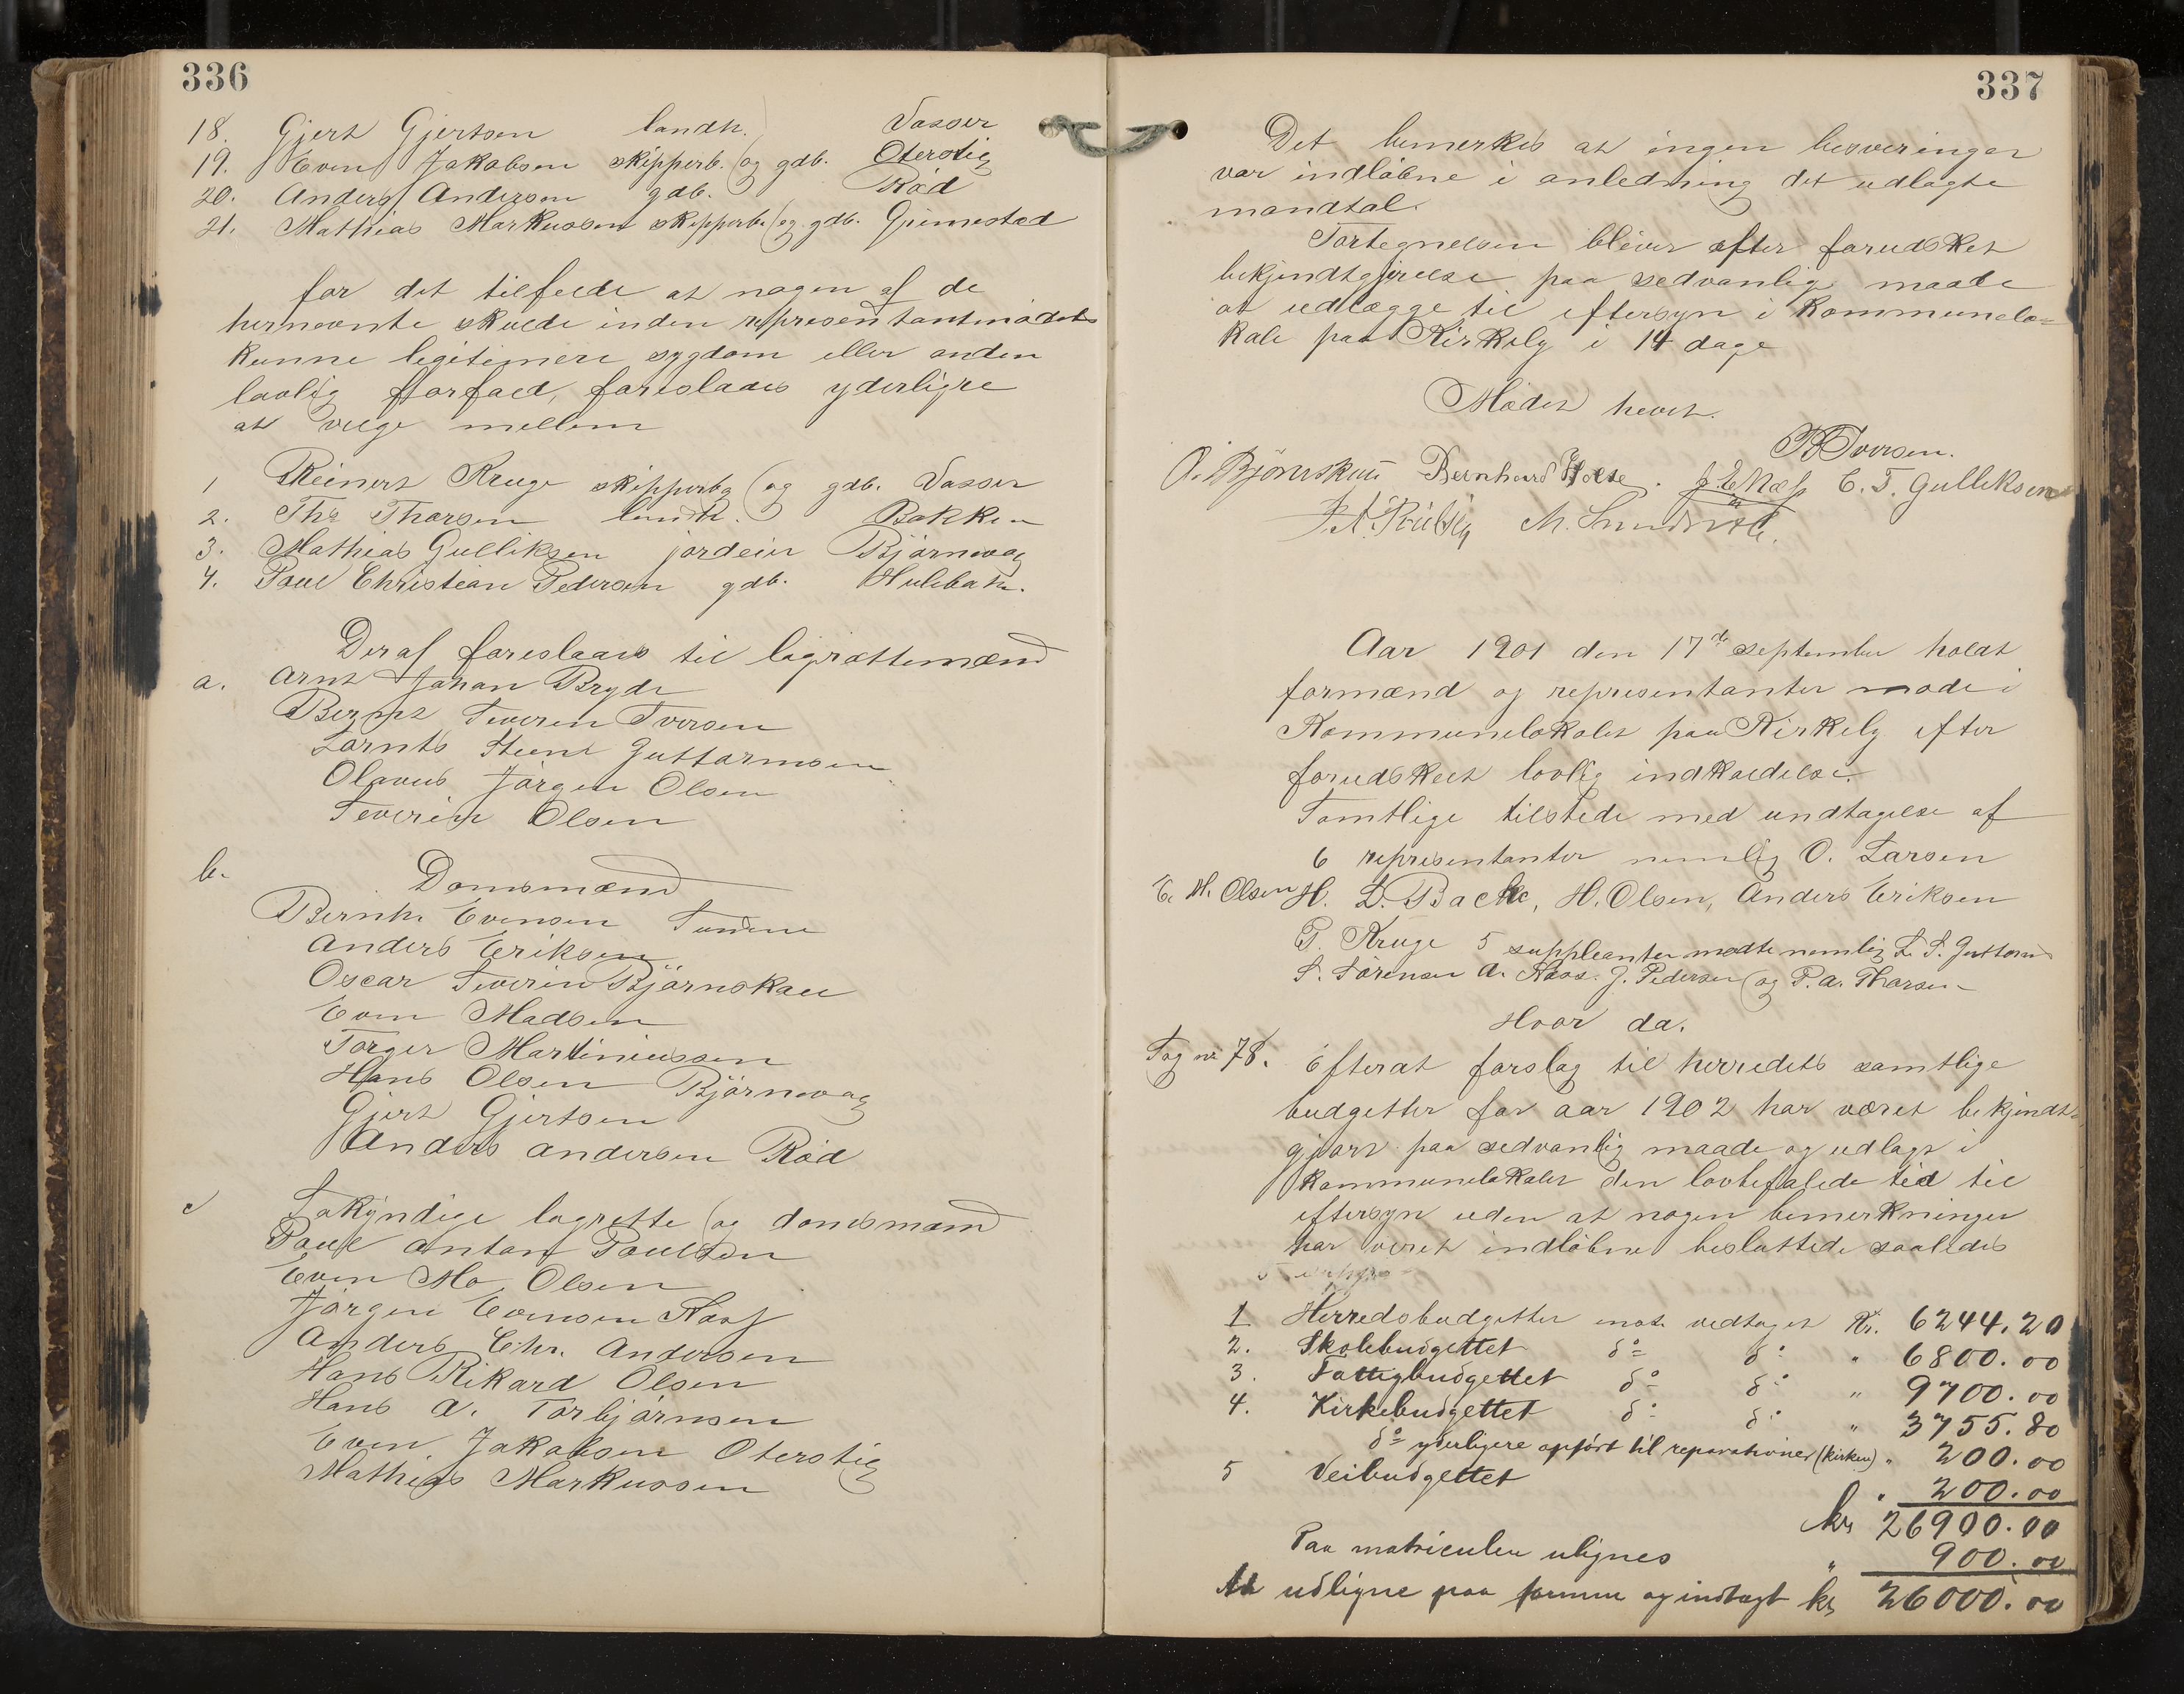 336
18. Gjert Gjertsen landh. Vasser
19. Even Jakobsen skipperb. og gdb. Oterstig
20. Anders Andersen gdb. Röd
21. Mathias Markussen skipperb. og gdb. Gjimestad
for det tilfelde at nogen af de
hernevnte skulde inden representantmödet
kunne legitimere sygdom eller anden
lovlig forfald, foreslaaes yderligre
at velge mellem
1 Reinert Kruge skipperbg og gdb. Vasser
2. Ths Thorsen landh. Bakken
3. Mathias Gulliksen jordeier Björnevog
4. Poul Christian Pedersen gdb. Hulebak.
Deraf foreslaaes til lagrættemænd
a. Arnt Johan Bryde
Bernt Severin Iversen
Lornts Steene Guttormsen
Olavus Jörgen Olsen
Severin Olsen
b. Domsmænd
Bernh. Evensen Sundene
Anders Eriksen
Oscar Severin Björnskau
Even Madsen
Torger Martiniussen
Hans Olsen Björnevog
Gjert Gjertsen
Anders Andersen Röd
c Sakyndige lagrette og domsmænd
Poul Anton Poulsen
Even Mo Olsen
Jörgen Evensen Næss
Anders Chr. Andersen
Hans Rikard Olsen
Hans A. Torbjörnsen
Even Jakobsen Oterstig
Mathias Markussen
337
Det bemerkes at ingen besveringer
var indlöbne i anledning det udlagte
mandtal.
Fortegnelsen bliver efter forudsket
bekjendtgjörelse paa sedvanlig maade
at udlægge til eftersyn i Kommunelo=
kale paa Kirkely i 14 dage
Mödet hevet.
B Iversen.
O. Björnskau Bernhard Holte. C. T. Gulliksen
M. Sundene.
Aar 1901 den 17de september holdt
formænd og representanter möde i
Kommunelokalet paa Kirkely efter
forudskeet lovlig indkaldelse.
Samtlige tilstede med undtagelse af
6 representanter nemlig O. Larsen
E. M. Olsen H. L. Bache, H. Olsen, Anders Eriksen
P. Kruge 5 suppleanter mödte nemlig L. S. Guttorms
S. Sörensen A. Næss. J. Pedersen og P. A. Thorsen
Hvor da.
Sag nr 78. Efterat forslag til herredets samtlige
budgetter for aar 1902 har været bekjendt-
gjort paa sedvanlig maade og udlagt i
kommunelokalet den lovbefalede tid til
eftersyn uden at nogen bemerkninger
har veret indlöbne besluttede saaledes
1 Herredsbudgettet enst. vedtaget Kr. 6244.20
2. Skolebudgettet do do " 6800.00
3. Fattigbudgettet do do " 9700.00
4. Kirkebudgettet do do " 3755.80
do yderligere opfört til reparationer (kirken) " 200.00
5 Veibudgettet " 200.00
kr 26900.00
Paa matriculen ulignes " 900.00
At udligne paa formue og indtægt kr 26000.00